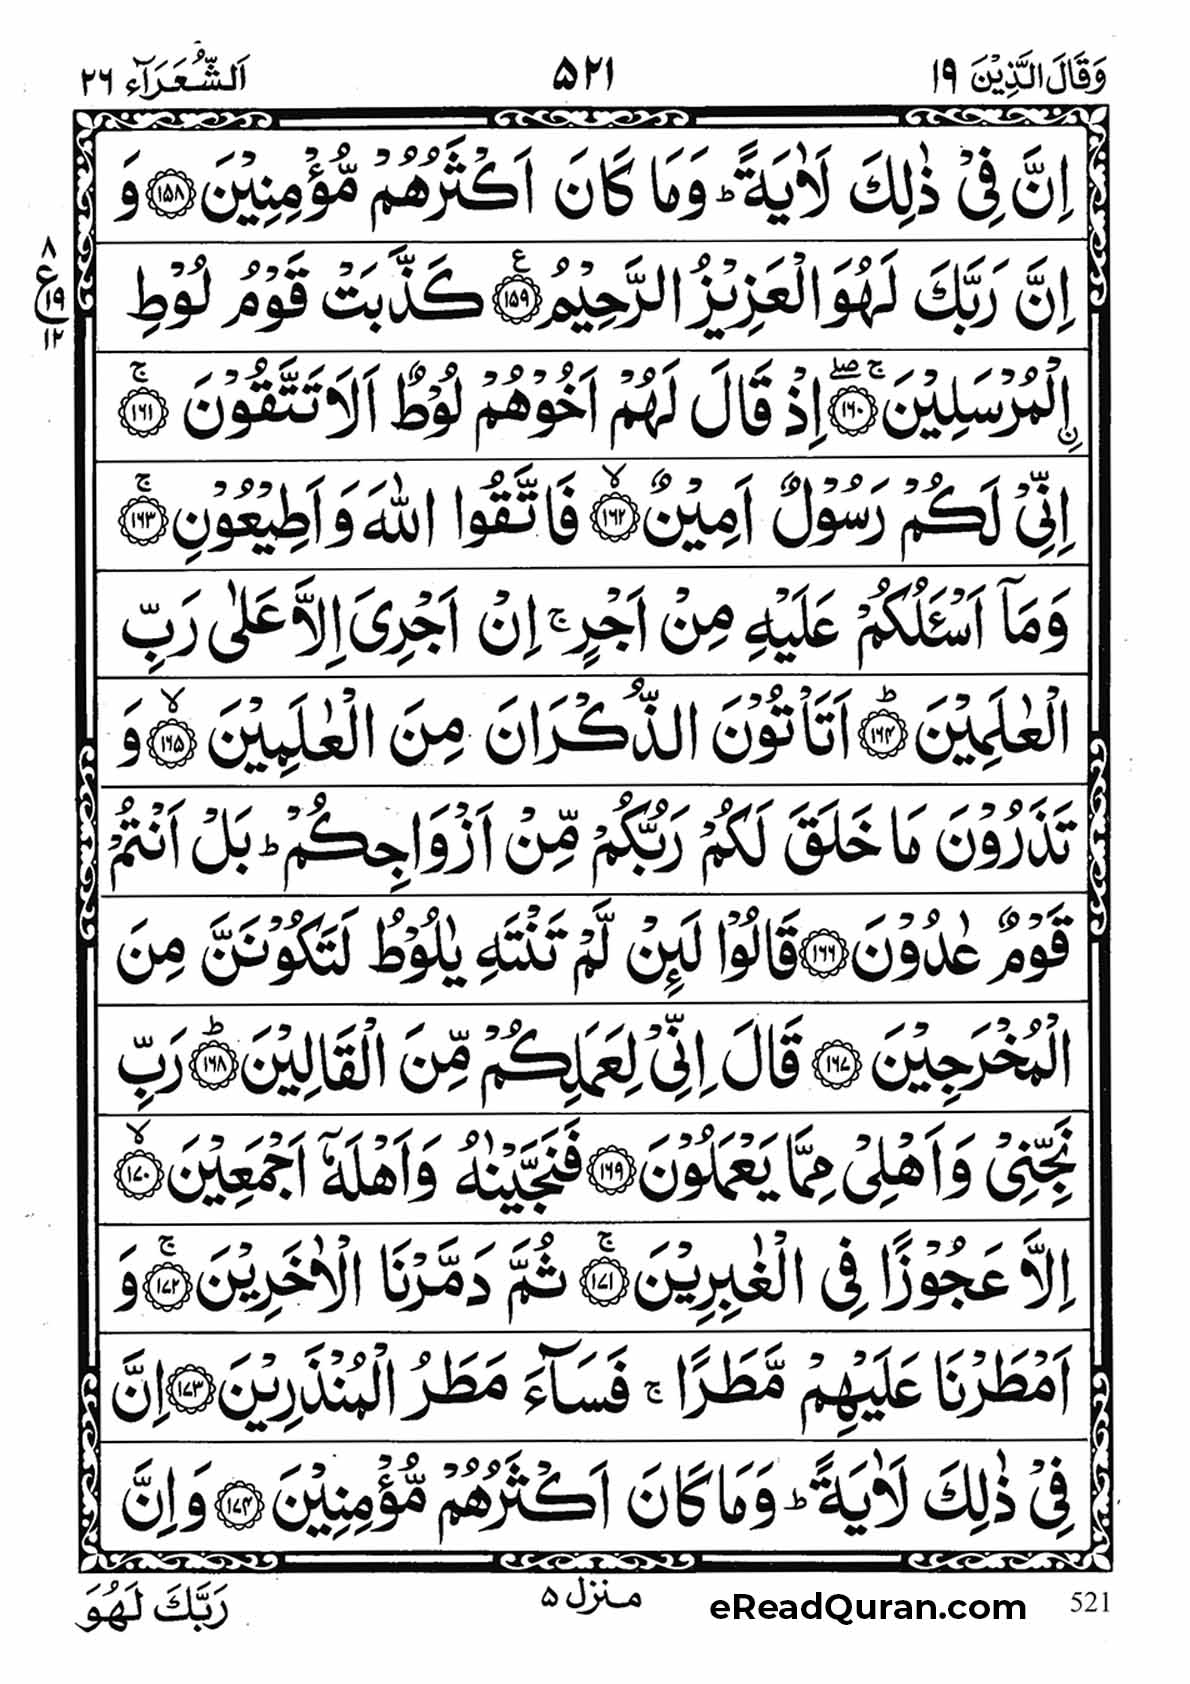 وَقَالَ الَّذِيْنَ ١٩ ٥٢١ اَلشُّعَرَآء ٢٦
اِنَّ فِيْ ذٰلِكَ لَاٰيَةً ؕ وَمَا كَانَ اَكْثَرُهُمْ مُّؤْمِنِيْنَ ﴿١٥٨﴾ وَ
اِنَّ رَبَّكَ لَهُوَ الْعَزِيْزُ الرَّحِيْمُ ﴿١٥٩﴾ ع كَذَّبَتْ قَوْمُ لُوْطِ
٨
ع
١٩
١٢
ِۨالْمُرْسَلِيْنَ ﴿١٦٠﴾ ۚۖ اِذْ قَالَ لَهُمْ اَخُوْهُمْ لُوْطٌ اَلَا تَتَّقُوْنَ ﴿١٦١﴾ ۚ
اِنِّيْ لَكُمْ رَسُوْلٌ اَمِيْنٌ ﴿١٦٢﴾ ۙ فَاتَّقُوا اللّٰهَ وَاَطِيْعُوْنِ ﴿١٦٣﴾ ۚ
وَمَآ اَسْـَٔلُكُمْ عَلَيْهِ مِنْ اَجْرٍ ۚ اِنْ اَجْرِيَ اِلَّا عَلٰى رَبِّ
الْعٰلَمِيْنَ ﴿١٦٤﴾ ؕ اَتَاْتُوْنَ الذُّكْرَانَ مِنَ الْعٰلَمِيْنَ ﴿١٦٥﴾ ۙ وَ
تَذَرُوْنَ مَا خَلَقَ لَكُمْ رَبُّكُمْ مِّنْ اَزْوَاجِكُمْ ؕ بَلْ اَنْتُمْ
قَوْمٌ عٰدُوْنَ ﴿١٦٦﴾ قَالُوْا لَئِنْ لَّمْ تَنْتَهِ يٰلُوْطُ لَتَكُوْنَنَّ مِنَ
الْمُخْرَجِيْنَ ﴿١٦٧﴾ قَالَ اِنِّيْ لِعَمَلِكُمْ مِّنَ الْقَالِيْنَ ﴿١٦٨﴾ ؕ رَبِّ
نَجِّنِيْ وَاَهْلِيْ مِمَّا يَعْمَلُوْنَ ﴿١٦٩﴾ فَنَجَّيْنٰهُ وَاَهْلَهٗٓ اَجْمَعِيْنَ ﴿١٧٠﴾ ۙ
اِلَّا عَجُوْزًا فِي الْغٰبِرِيْنَ ﴿١٧١﴾ ۚ ثُمَّ دَمَّرْنَا الْاٰخَرِيْنَ ﴿١٧٢﴾ ۚ وَ
اَمْطَرْنَا عَلَيْهِمْ مَّطَرًا ۚ فَسَآءَ مَطَرُ الْمُنْذَرِيْنَ ﴿١٧٣﴾ اِنَّ
فِيْ ذٰلِكَ لَاٰيَةً ؕ وَمَا كَانَ اَكْثَرُهُمْ مُّؤْمِنِيْنَ ﴿١٧٤﴾ وَاِنَّ
رَبَّكَ لَهُوَ منزل ٥ eReadQuran.com 521